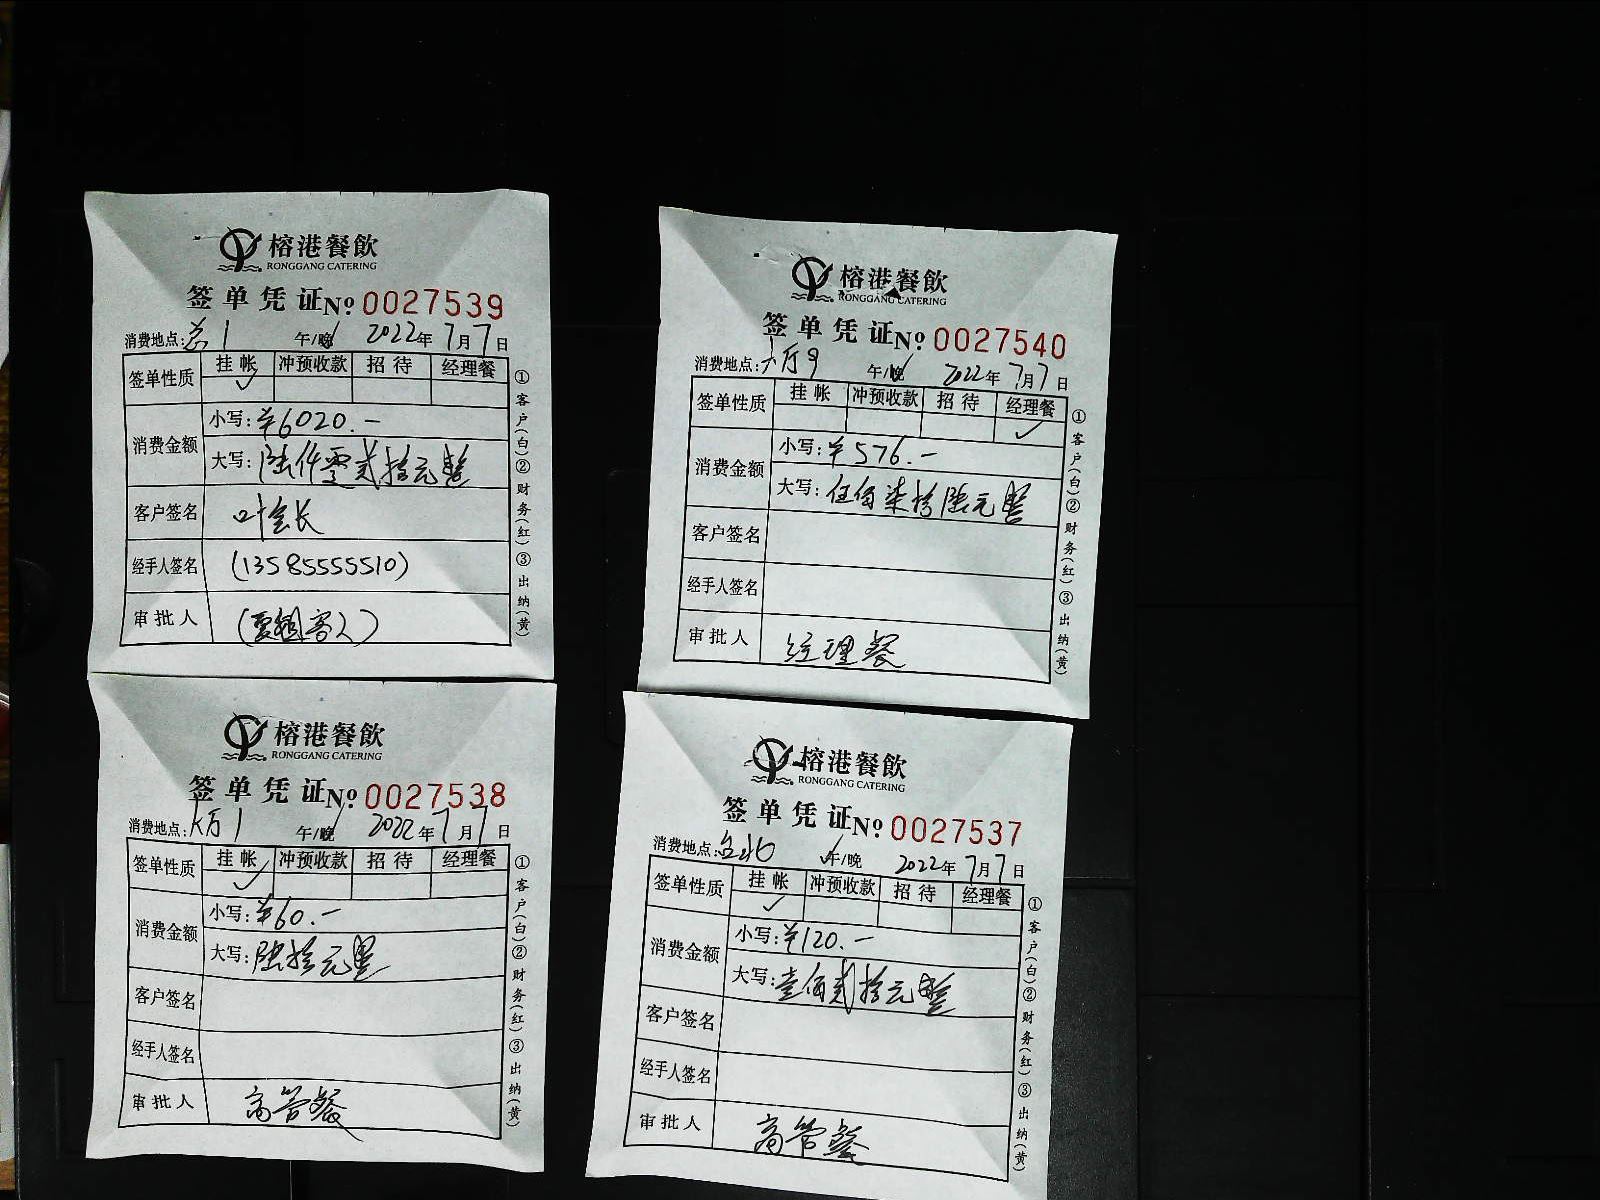 榕港餐飲
RONGGANG CATERING
签单凭证 No 0027539
消费地点: 总1 午/晚 2022年7月7日
签单性质 挂帐 冲预收款 招待 经理餐
✓
消费金额
小写: ¥6020.-
大写: 陆仟零贰拾元整
客户签名 叶会长
经手人签名 (13585555510)
审批人 (贾总客人)
①客户(白)②财务(红)③出纳(黄)
榕港餐飲
RONGGANG CATERING
签单凭证 No 0027540
消费地点: 大厅9 午/晚 2022年7月7日
签单性质 挂帐 冲预收款 招待 经理餐
✓
消费金额
小写: ¥576.-
大写: 伍佰柒拾陆元整
客户签名
经手人签名
审批人 经理餐
①客户(白)②财务(红)③出纳(黄)
榕港餐飲
RONGGANG CATERING
签单凭证 No 0027538
消费地点: 大厅1 午/晚 2022年7月7日
签单性质 挂帐 冲预收款 招待 经理餐
✓
消费金额
小写: ¥60.-
大写: 陆拾元整
客户签名
经手人签名
审批人 高管餐
①客户(白)②财务(红)③出纳(黄)
榕港餐飲
RONGGANG CATERING
签单凭证 No 0027537
消费地点: 台北 午/晚 2022年7月7日
签单性质 挂帐 冲预收款 招待 经理餐
✓
消费金额
小写: ¥120.-
大写: 壹佰贰拾元整
客户签名
经手人签名
审批人 高管餐
①客户(白)②财务(红)③出纳(黄)